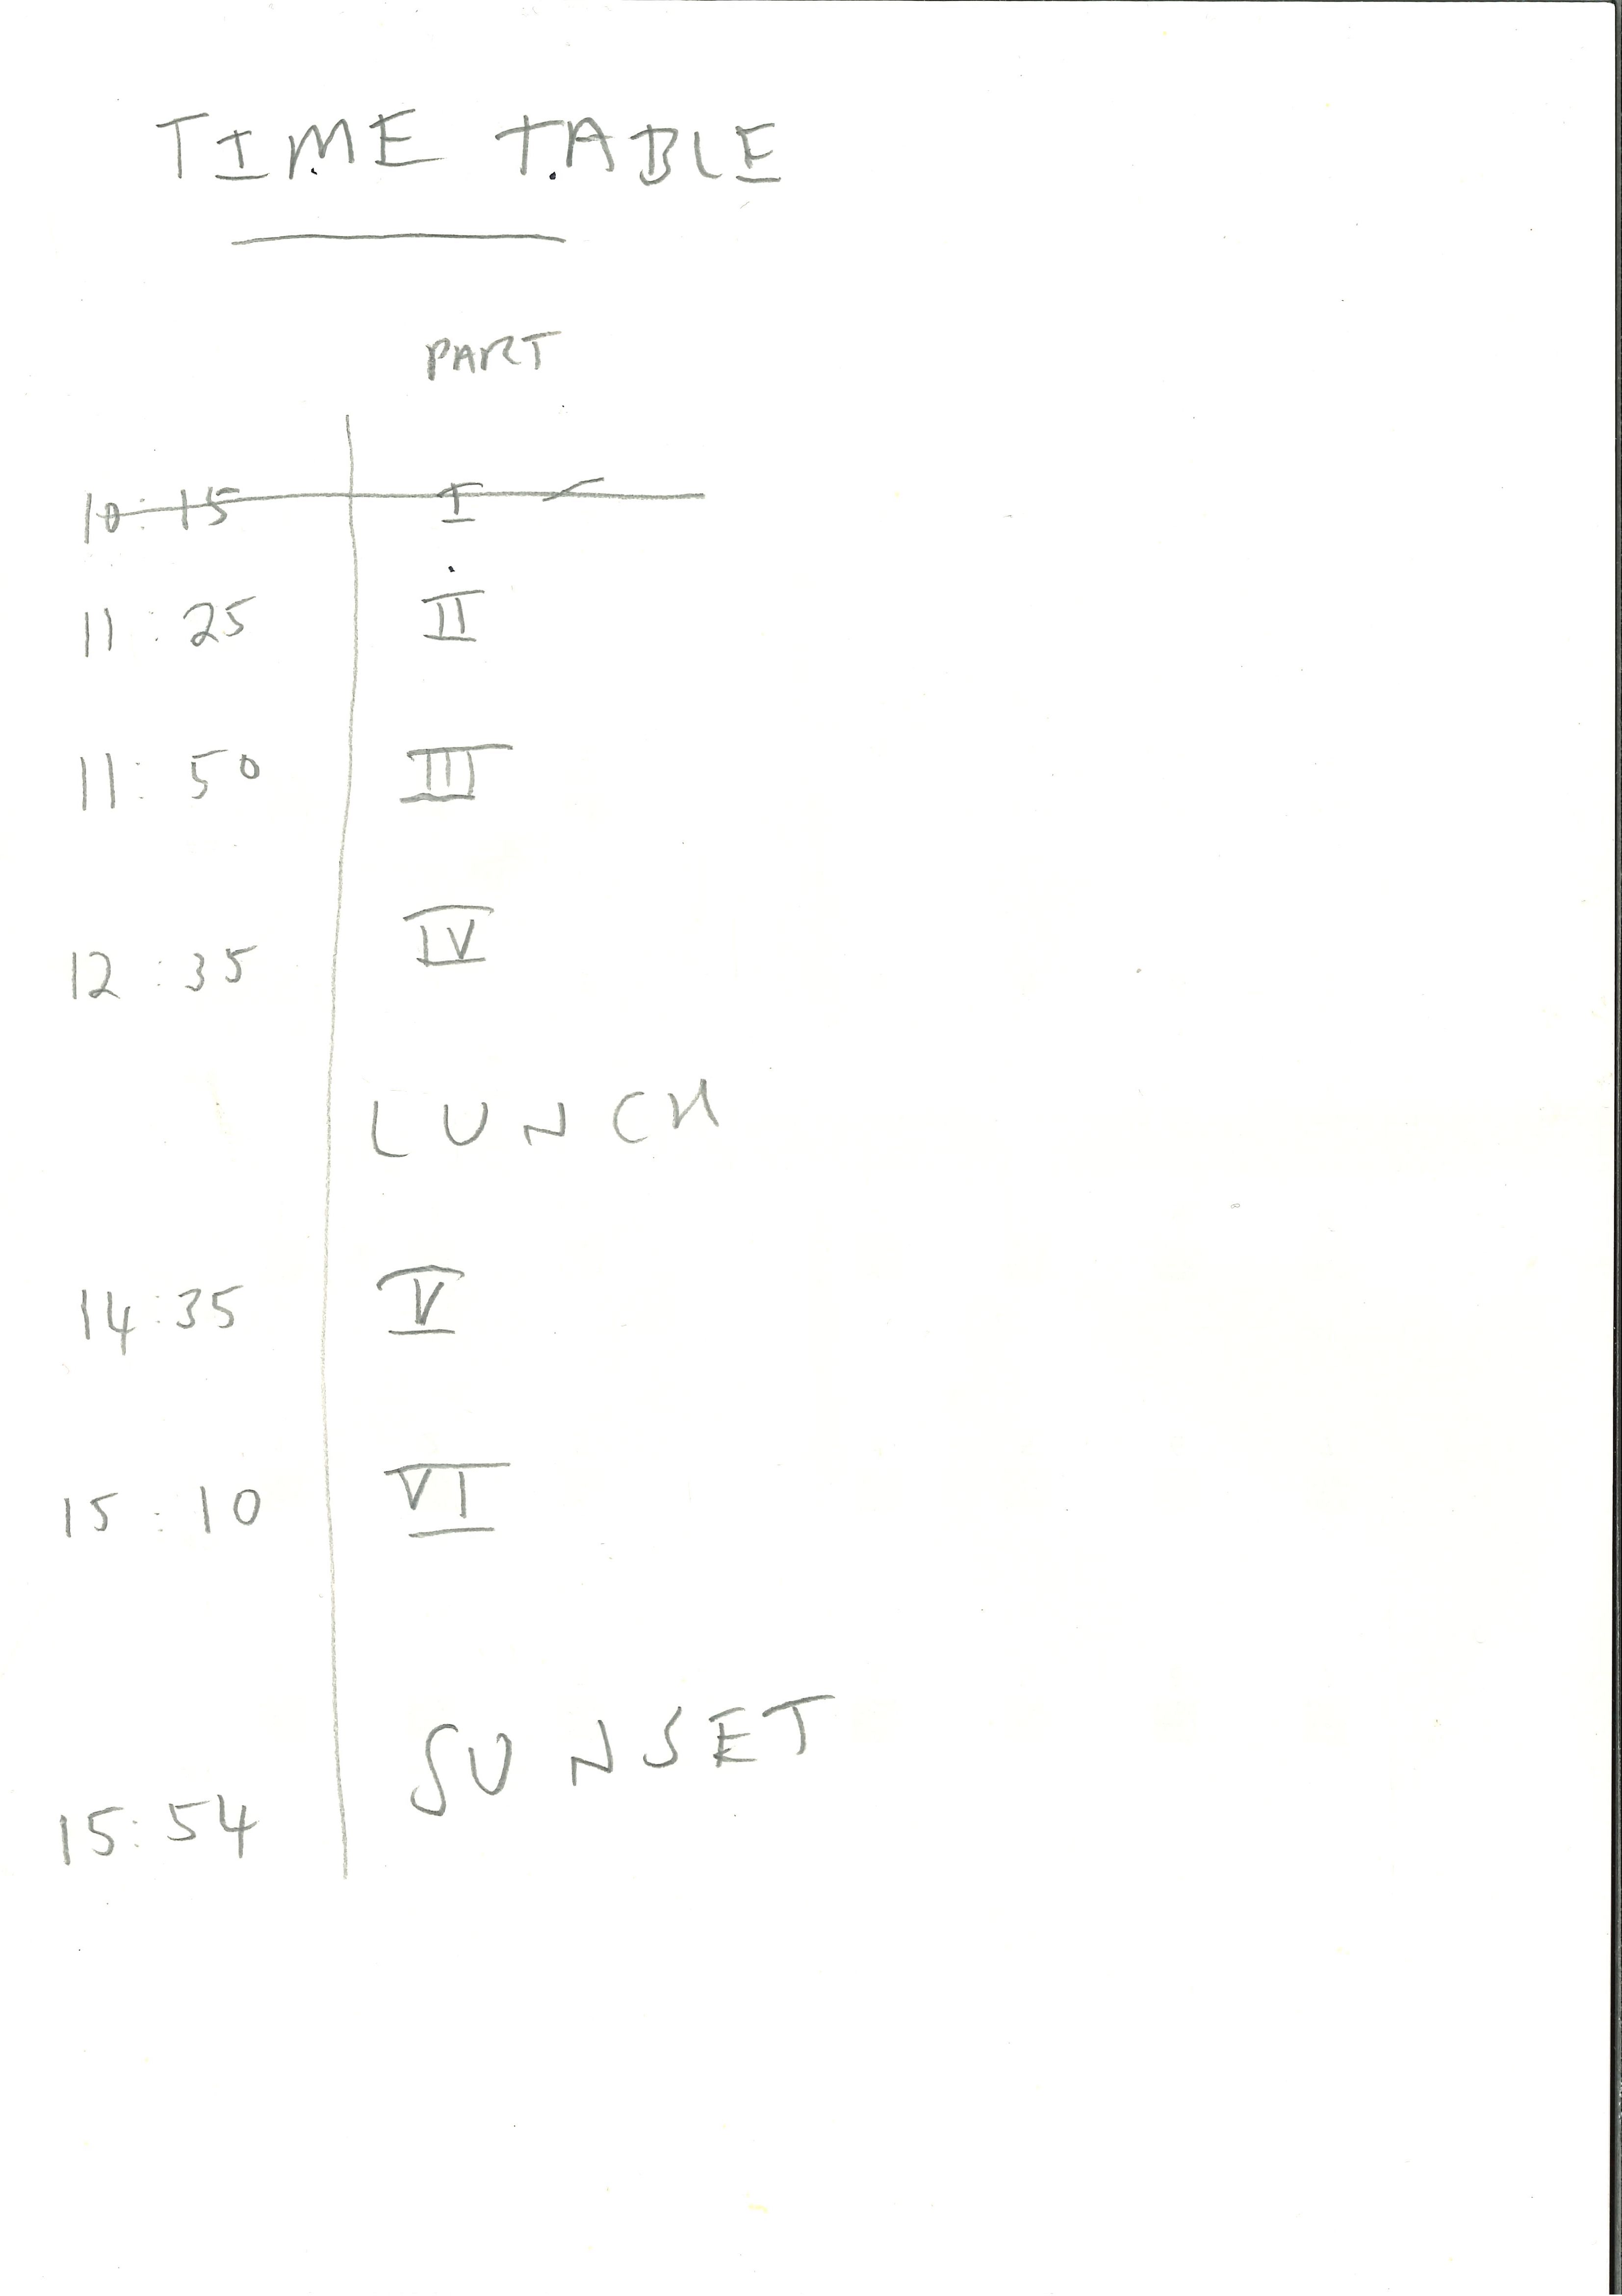 TIME TABLE
PART
10:15 I
11:25 II
11:50 III
12:35 IV
LUNCH
14:35 V
15:10 VI
SUNSET
15:54